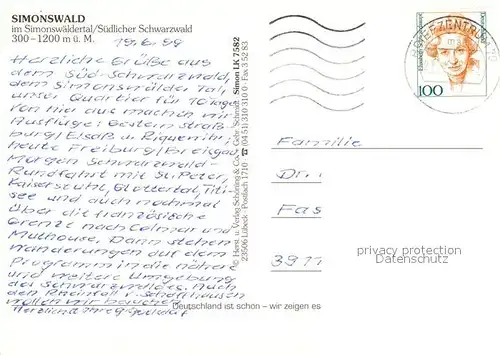 SIMONSWALD
im Simonswäldertal/Südlicher Schwarzwald
300–1200 m ü. M.
19.6.99
Herzliche Grüße aus
dem Süd-Schwarzwald,
dem Simonswälder Tal,
unser Quartier für 10 Tage
von hier aus machen wir
Ausflüge: Gestern Straß
burg/Elsaß u. Riquewihr,
heute Freiburg/Breisgau,
Morgen Schwarzwald-
Rundfahrt mit St. Peter,
Kaiserstuhl, Glottertal, Titi-
see und auch nochmal
über die französische
Grenze nach Colmar und
Mulhouse. Dann stehen
Wanderungen auf dem
Programm in die nähere
und weitere Umgebung
des Schwarzwaldes. Auch
den Rheinfall v. Schaffhausen
wollen wir besuchen
Herzlichst Ihre
© Horst u. Verlag Schöning & Co. · Gebr. Schmidt
23506 Lübeck · Postfach 1710 · ☎ (04 51) 310 310 · Fax 3 52 83
Simon LK 7582
Deutschland ist schön – wir zeigen es
BRIEFZENTRUM
100
Familie
Dr.
Fas
3911
privacy protection
Datenschutz